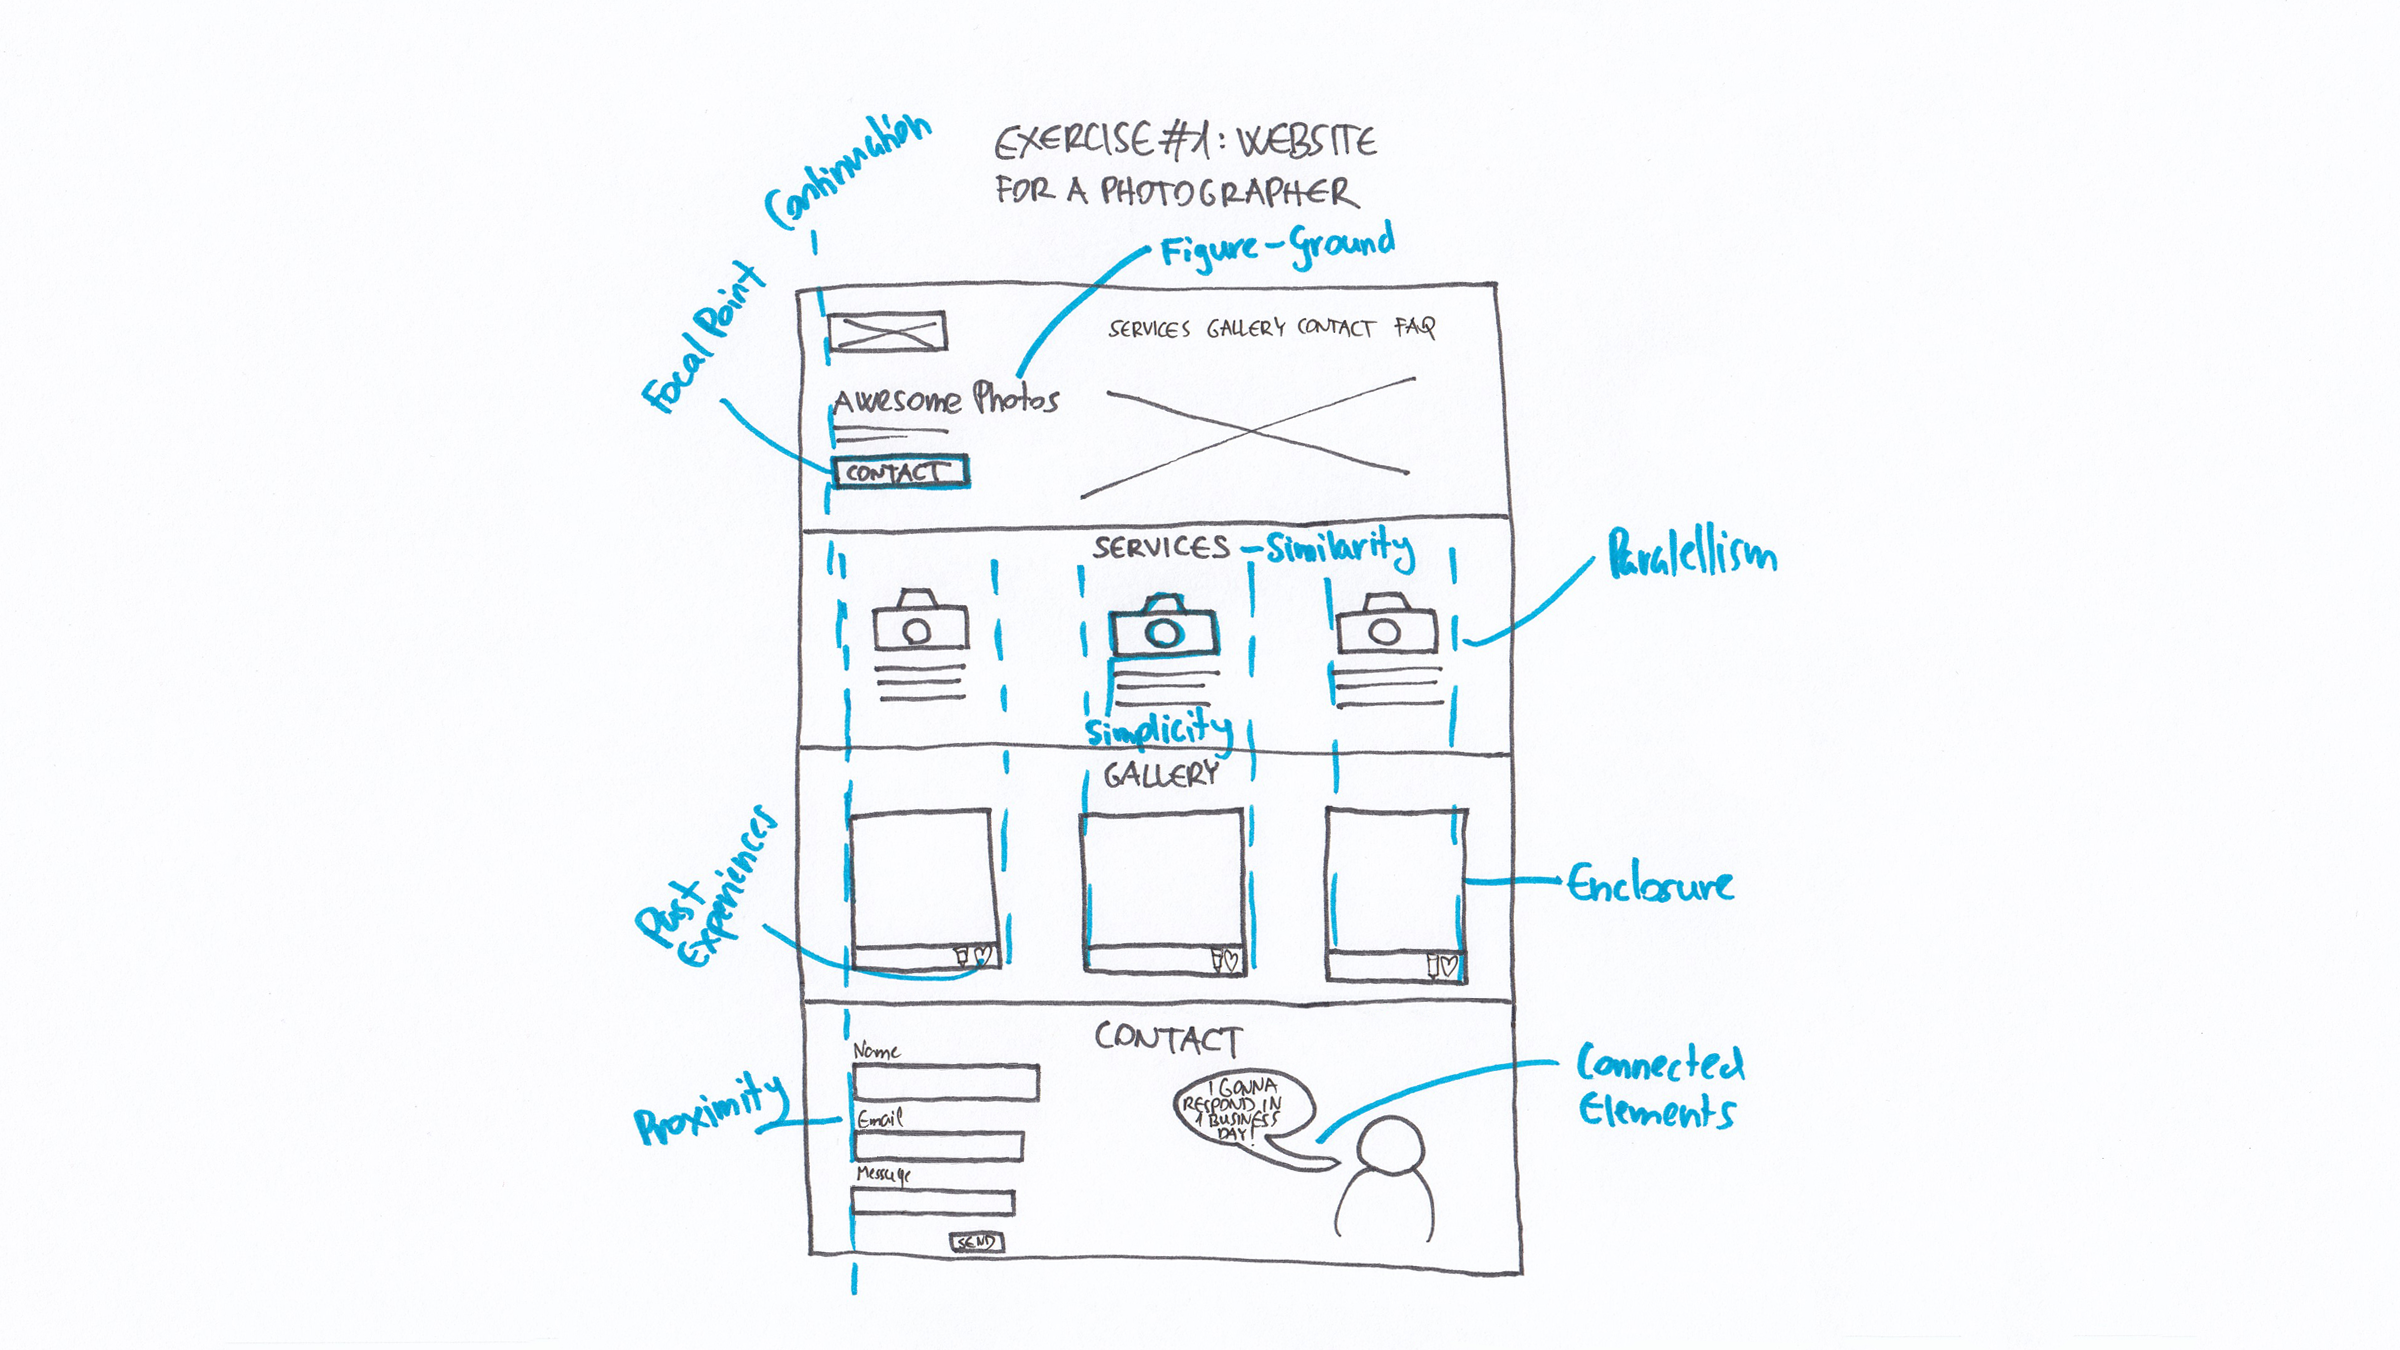 Continuation
EXERCISE #1: WEBSITE
FOR A PHOTOGRAPHER
Figure-Ground
Focal Point
SERVICES GALLERY CONTACT FAQ
Awesome Photos
CONTACT
SERVICES - Similarity
Paralellism
Simplicity
GALLERY
Past
Experiences
Enclosure
CONTACT
Name
Email
Message
SEND
Proximity
I GONNA
RESPOND IN
1 BUSINESS
DAY!
Connected
Elements